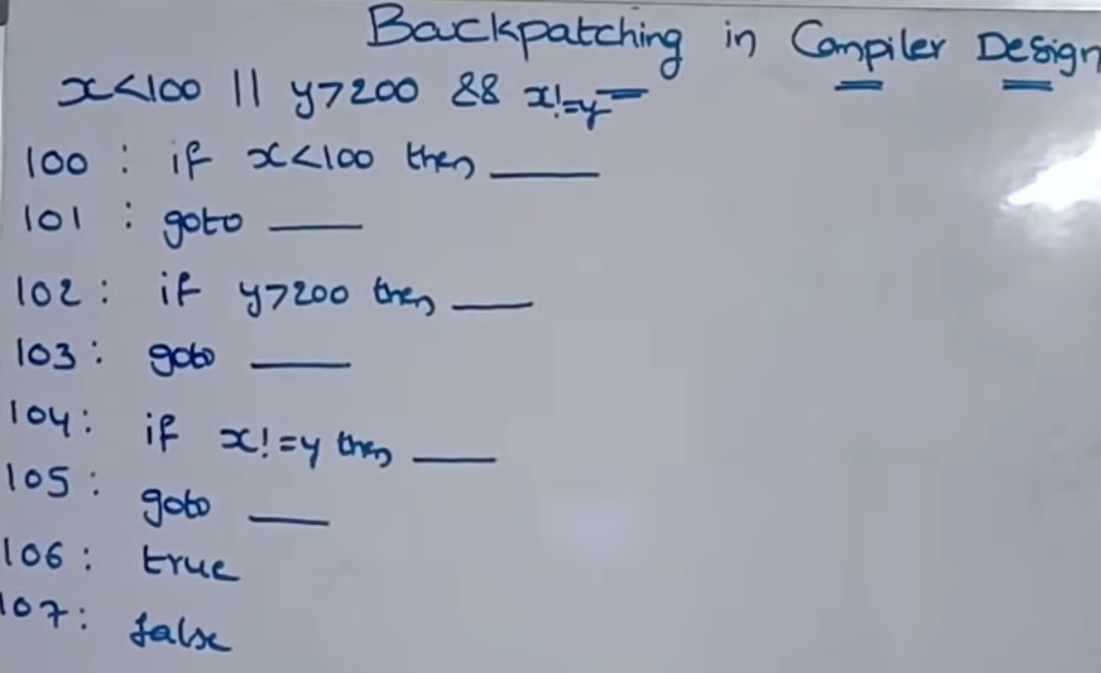 Backpatching in Compiler Design
x<100 || y>200 && x!=y
100 : if x<100 then ____
101 : goto ____
102 : if y>200 then ____
103 : goto ____
104 : if x!=y then ____
105 : goto ____
106 : true
107 : false